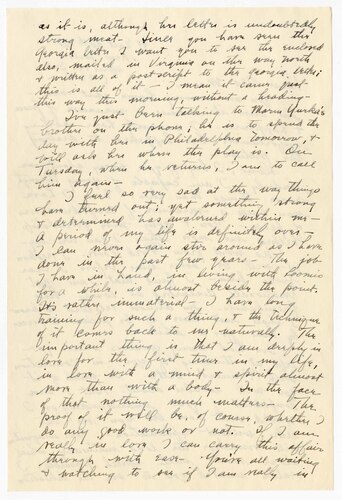 as it is, although her letter is undoubtedly
strong meat - Since you have seen the
Georgia letter I want you to see the enclosed
also, mailed in Virginia on the way north
& written as a postscript to the Georgia letter;
this is all of it - I mean it came just
this way this morning, without a heading -
I've just been talking to
brother on the phone; he is to spend the
day with her in Philadelphia tomorrow, &
will ask her where the play is. On
Tuesday, when he returns, I am to call
him again -
I feel so very sad at the way things
have turned out; yet something strong
& determined has awakened within me -
A period of my life is definitely over -
I can never again stew around as I have
done in the past few years - The job
I have in hand, in living with
for a while, is almost beside the point.
It's rather immaterial - I have long
training for such a thing, & the technique
of it comes back to me naturally. The
important thing is that I am deeply in
love for the first time in my life,
in love with a mind & spirit almost
more than with a body - In the face
of that nothing much matters - The
proof of it will be, of course, whether I
do any good work or not. If I am
really in love I can carry this affair
through with ease - You're all waiting
& watching to see if I am really in